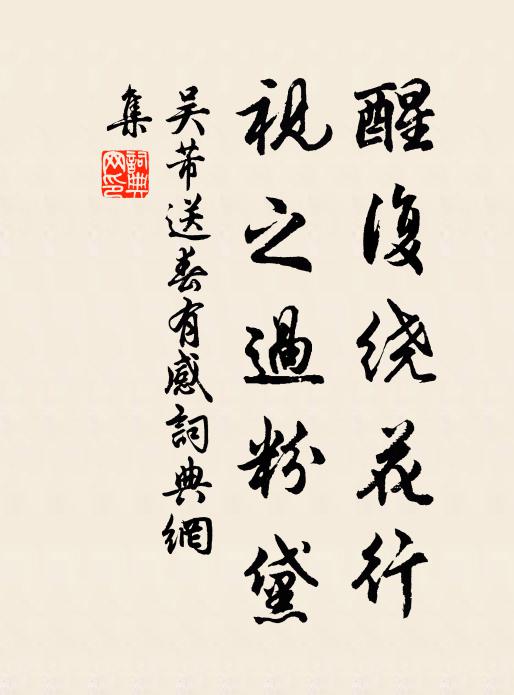 醒復绕花行
視之過粉黛
吴芾送春有感詞典網
集
詞典
网印